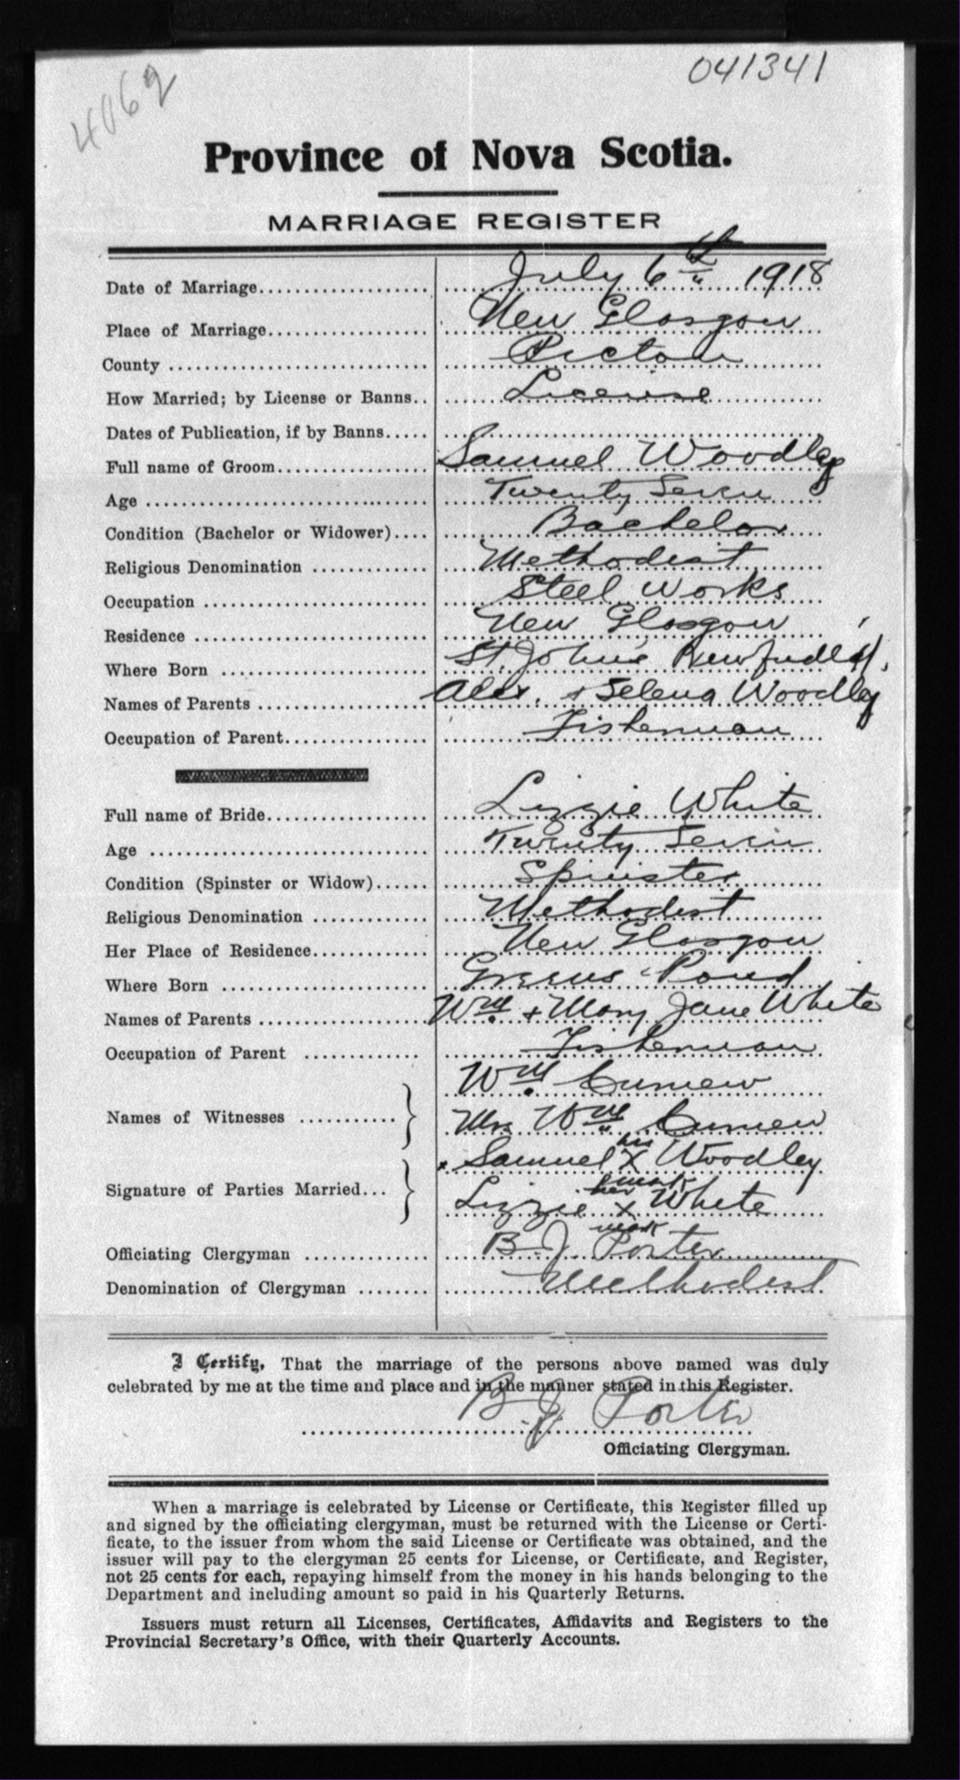 4062
041341
Province of Nova Scotia.
MARRIAGE REGISTER
Date of Marriage.................. July 6th 1918
Place of Marriage.................. New Glasgow
County .................. Pictou
How Married; by License or Banns.. License
Dates of Publication, if by Banns.....
Full name of Groom.................. Samuel Woodley
Age .................. Twenty Seven
Condition (Bachelor or Widower).... Bachelor
Religious Denomination ............ Methodist
Occupation .................. Steel Works
Residence .................. New Glasgow
Where Born .................. St. John's Newfndld.
Names of Parents .................. Alex. + Selena Woodley
Occupation of Parent.................. Fisherman
Full name of Bride.................. Lizzie White
Age .................. Twenty Seven
Condition (Spinster or Widow)...... Spinster
Religious Denomination ............ Methodist
Her Place of Residence............ New Glasgow
Where Born .................. Greens Pond
Names of Parents .................. Wm + Mary Jane White
Occupation of Parent ............ Fisherman
Names of Witnesses ............ Wm
Mrs Wm
Signature of Parties Married... Samuel his X mark Woodley
Lizzie her X mark White
Officiating Clergyman ............ B. J. Porter
Denomination of Clergyman ........ Methodist
I Certify, That the marriage of the persons above named was duly
celebrated by me at the time and place and in the manner stated in this Register.
B. J. Porter
Officiating Clergyman.
When a marriage is celebrated by License or Certificate, this Register filled up
and signed by the officiating clergyman, must be returned with the License or Certi-
ficate, to the issuer from whom the said License or Certificate was obtained, and the
issuer will pay to the clergyman 25 cents for License, or Certificate, and Register,
not 25 cents for each, repaying himself from the money in his hands belonging to the
Department and including amount so paid in his Quarterly Returns.
Issuers must return all Licenses, Certificates, Affidavits and Registers to the
Provincial Secretary's Office, with their Quarterly Accounts.